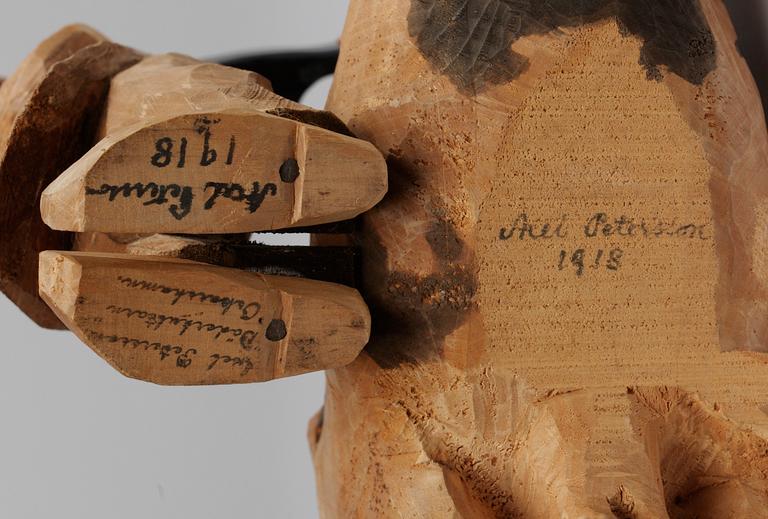 Axel Petersson
1918
Axel Petersson
Döderhultarn
Oskarshamn.
Axel Petersson
1918